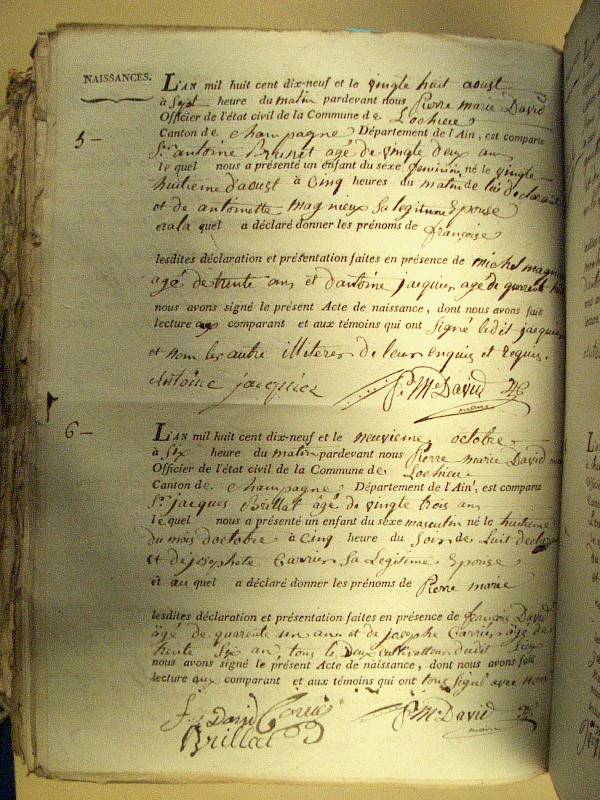 NAISSANCES.
L'AN mil huit cent dix-neuf et le vingte huit aoust
à Sept heure du matin pardevant nous Pierre marie David
Officier de l'état civil de la Commune de Lochieu
5 — Canton de Champagne Département de l'Ain, est comparu
Sr. antoine Brunet agé de vingte deux ans
le quel nous a présenté un enfant du sexe feminin né le vingte
huitieme d'aoust à Cinq heures du matin de lui declarant
et de antoinette magnieux sa legitime Epouse
et a la quel a déclaré donner les prénoms de françoise
lesdites déclaration et présentation faites en présence de michel
agé de trente ans et d'antoine jacquier agé de quarente
nous avons signé le présent Acte de naissance, dont nous avons fait
lecture aux comparant et aux témoins qui ont Signé ledit jacquier
et nom les autre illiteres de leur enquis et requis.
Antoine jacquier P. M. David
maire
6 — L'AN mil huit cent dix-neuf et le neuvieme octobre
à Six heure du matin pardevant nous Pierre marie David
Officier de l'état civil de la Commune de Lochieu
Canton de Champagne Département de l'Ain, est comparu
Sr. jacques Brillat âgé de vingte trois ans
le quel nous a présenté un enfant du sexe masculin né le huitieme
du mois d'octobre à Cinq heure du Soir de Luit
et de josephete Carrier Sa Legitime Epouse
et au quel a déclaré donner les prénoms de Pierre marie
lesdites déclaration et présentation faites en présence de françois David
âgé de quarente un ans et de josephe Carrier âgé de
trente Six ans, tous le Deux cultivateur dudit Lieu
nous avons signé le présent Acte de naissance, dont nous avons fait
lecture aux comparant et aux témoins qui ont tous signé avec nous
f. David
Brillat P. M. David
maire